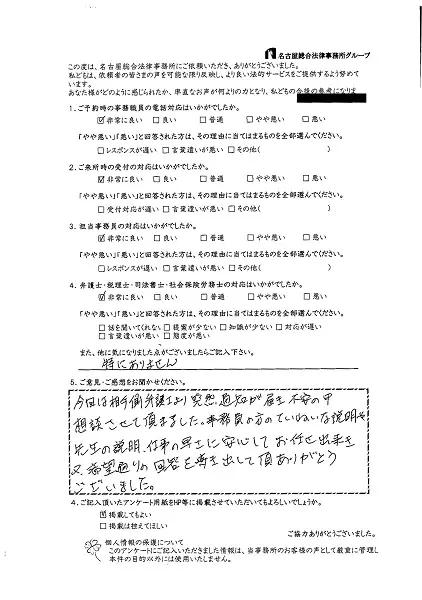 名古屋総合法律事務所グループ
この度は、名古屋総合法律事務所にご依頼いただき、ありがとうございました。
私どもは、依頼者の皆さまの声を可能な限り反映し、より良い法的サービスをご提供するよう努めて
います。
あなた様がどのように感じられたか、率直なお声が何よりの力となり、私どもの今後の参考になりま
1.ご予約時の事務職員の電話対応はいかがでしたか。
☑非常に良い □良い □普通 □やや悪い □悪い
「やや悪い」「悪い」と回答された方は、その理由に当てはまるものを全部選んでください。
□レスポンスが遅い □言葉遣いが悪い □その他( )
2.ご来所時の受付の対応はいかがでしたか。
☑非常に良い □良い □普通 □やや悪い □悪い
「やや悪い」「悪い」と回答された方は、その理由に当てはまるものを全部選んでください。
□受付対応が遅い □言葉遣いが悪い □その他( )
3.担当事務員の対応はいかがでしたか。
☑非常に良い □良い □普通 □やや悪い □悪い
「やや悪い」「悪い」と回答された方は、その理由に当てはまるものを全部選んでください。
□レスポンスが遅い □言葉遣いが悪い □その他( )
4.弁護士・税理士・司法書士・社会保険労務士の対応はいかがでしたか。
☑非常に良い □良い □普通 □やや悪い □悪い
「やや悪い」「悪い」と回答された方は、その理由に当てはまるものを全部選んでください。
□話を聞いてくれない □提案が少ない □知識が少ない □対応が遅い
□言葉遣いが悪い □態度が悪い
また、他に気になりました点がございましたらご記入下さい。
特にありません
5.ご意見・ご感想をお聞かせください。
今回は相手側弁護士より突然通知が届き不安の中
相談させて頂きました。事務員の方のていねいな説明や
先生の説明、仕事の早さに安心してお任せ出来き
又希望通りの回答を導き出して頂ありがとう
ございました。
4.ご記入頂いたアンケート用紙をHP等に掲載させていただいてもよろしいでしょうか。
☑掲載してもよい
□掲載は控えてほしい
ご協力ありがとうございました。
個人情報の保護について
このアンケートにご記入いただきました情報は、当事務所のお客様の声として厳重に管理し
本件の目的以外には使用いたしません。